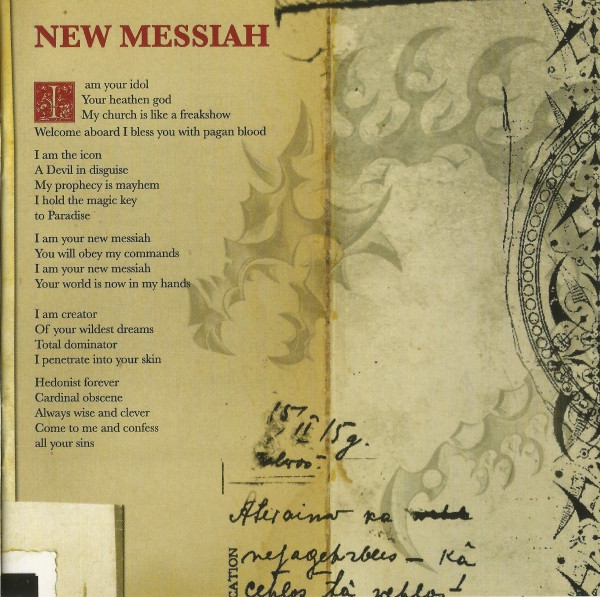 NEW MESSIAH
I am your idol
Your heathen god
My church is like a freakshow
Welcome aboard I bless you with pagan blood
I am the icon
A Devil in disguise
My prophecy is mayhem
I hold the magic key
to Paradise
I am your new messiah
You will obey my commands
I am your new messiah
Your world is now in my hands
I am creator
Of your wildest dreams
Total dominator
I penetrate into your skin
Hedonist forever
Cardinal obscene
Always wise and clever
Come to me and confess
all your sins
15/II 15g.
ka
kā
CATION